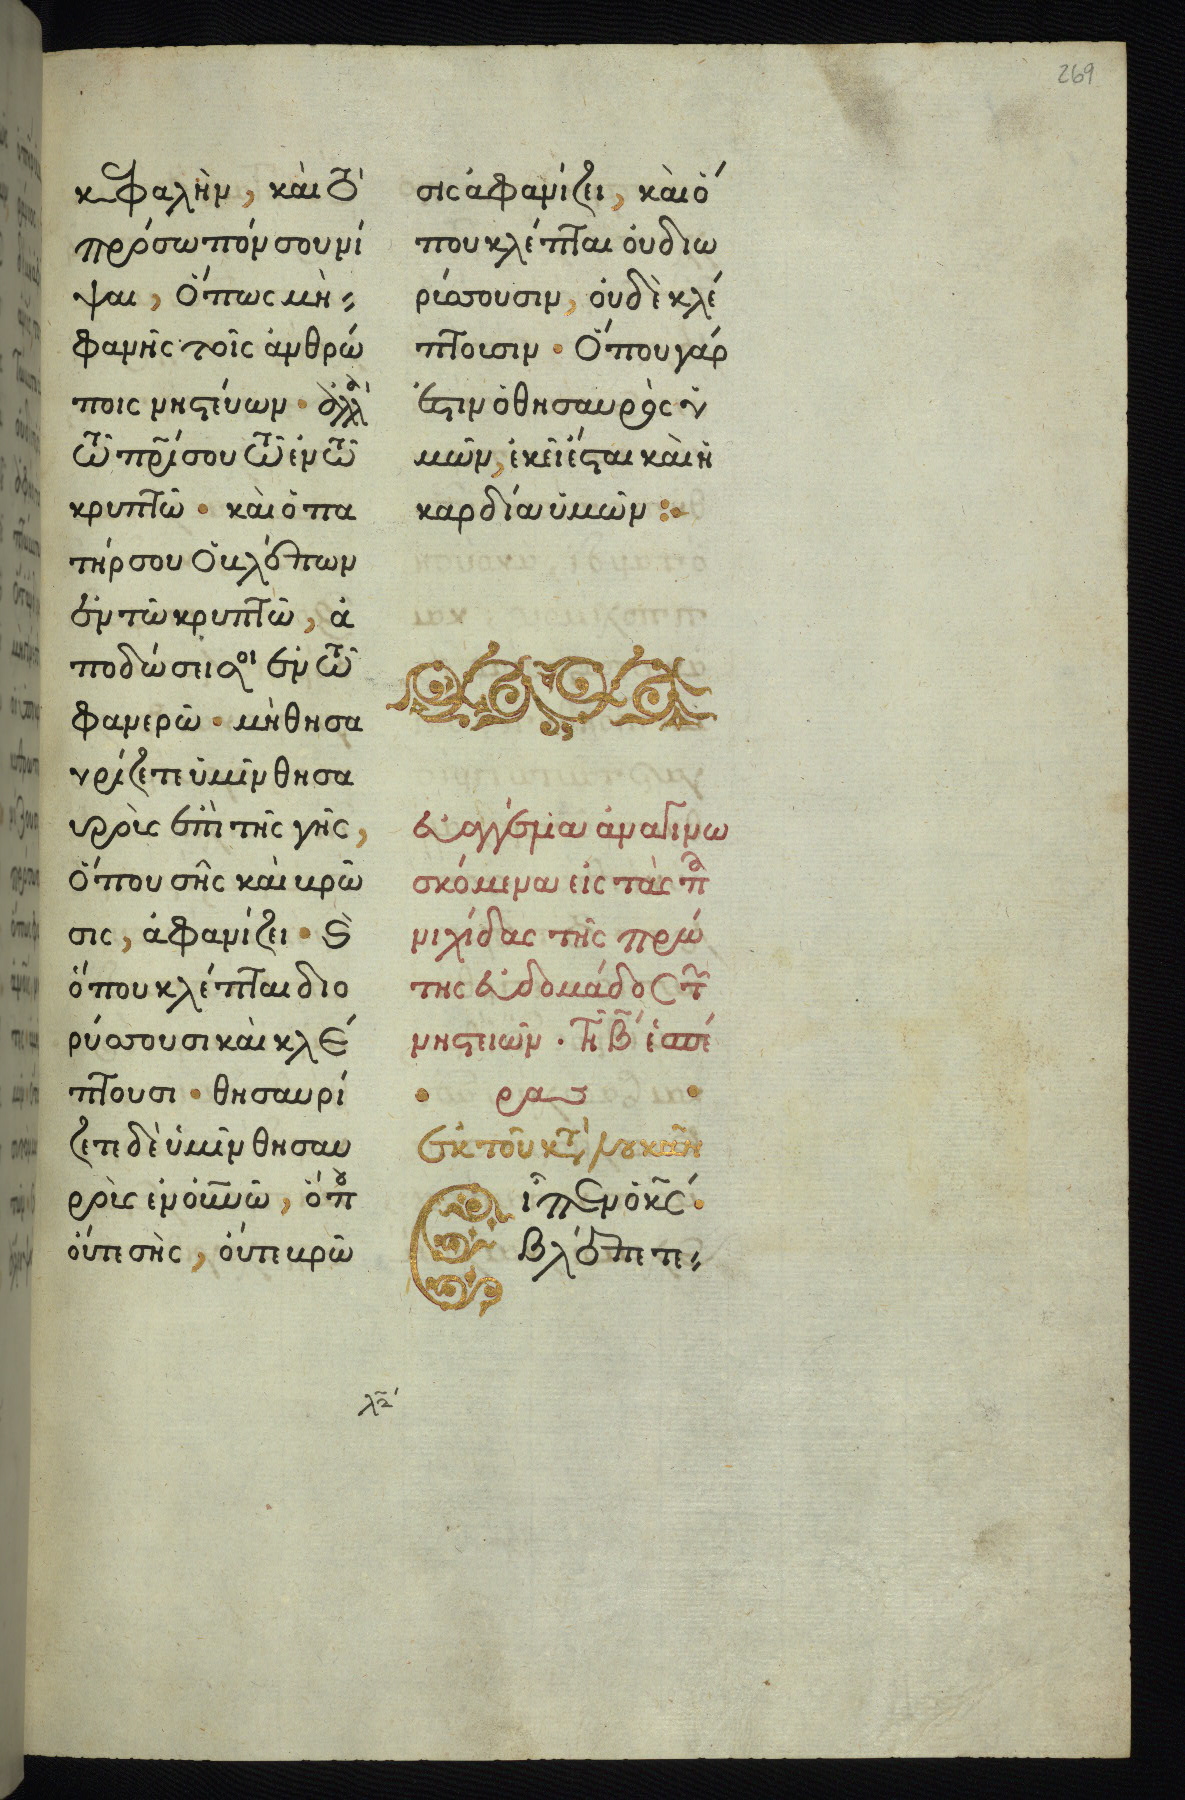 269
κεφαλὴν, καὶ τὸ
πρόσωπόν σου νί
ψαι, ὅπως μὴ
φανῆς τοῖς ἀνθρώ
ποις νηστεύων· ἀλλὰ
τῶ πρί σου τῶ ἐν τῶ
κρυπτῶ· καὶ ὁ πα
τήρ σου ὁ βλέπων
ἐν τῶ κρυπτῶ, ἀ
ποδώσει σοι ἐν τῶ
φανερῶ· μὴ θησα
υρίζετε ὑμῖν θησα
υροὺς ἐπὶ τῆς γῆς,
ὅπου σῆς καὶ βρῶ
σις, ἀφανίζει· καὶ
ὅπου κλέπται διο
ρύσσουσι καὶ κλέ
πτουσι· θησαυρί
ζετε δὲ ὑμῖν θησαυ
ροὺς ἐν οὐνῶ, ὅπου
οὔτε σὴς, οὔτε βρῶ
σις ἀφανίζει, καὶ ὅ
που κλέπται οὐ διω
ρύσσουσιν, οὐδὲ κλέ
πτουσιν· Ὅπου γάρ
ἐστιν ὁ θησαυρὸς ὑ
μῶν, ἐκεῖ ἔσται καὶ ἡ
καρδία ὑμῶν :
Εὐαγγέλια ἀναγινω
σκόμενα εἰς τὰς παν
νυχίδας τῆς πρώ
της ἑβδομάδος τῶν
νηστειῶν. Τῆ Β ἑσπέ
ρας
ἐκ τοῦ κατὰ λουκᾶν
Εἶπεν ὁ κς·
βλέπετε
λδ